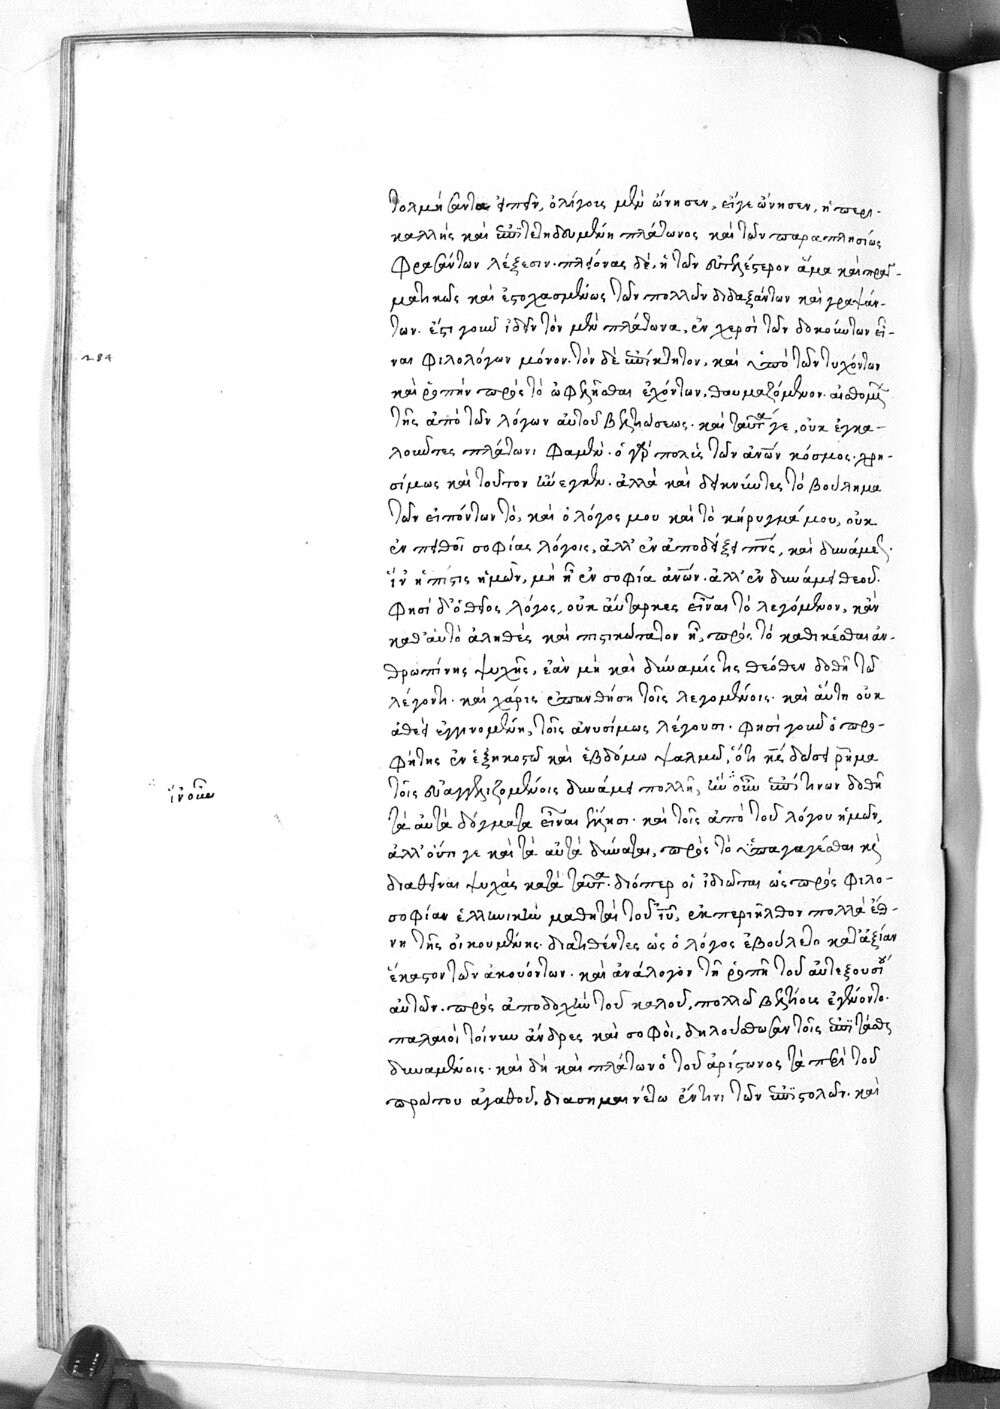 τολμήσαντα εἰπεῖν, ὀλίγοις μὲν ὤνησεν, εἴγε ὤνησεν, ἡ περι-
καλλὴς καὶ ἐπιτετηδευμένη πλάτωνος καὶ τῶν παραπλησίως
φρασάντων λέξεσιν. πλείονας δὲ, ἡ τῶν εὐτελέστερον ἅμα καὶ πραγ-
ματικῶς καὶ ἐστοχασμένως τῶν πολλῶν διδαξάντων καὶ γραψάν-
των. ἔστι γοῦν ἰδεῖν τὸν μὲν πλάτωνα, ἐν χερσὶ τῶν δοκούντων εἶ-
284
ναι φιλολόγων μόνον. τὸν δὲ ἐπίκτητον, καὶ ὑπὸ τῶν τυχόντων
καὶ ῥοπὴν πρὸς τὸ ὠφελεῖσθαι ἐχόντων, θαυμαζόμενον. αἰσθομένων
τῆς ἀπὸ τῶν λόγων αὐτοῦ βελτιώσεως. καὶ ταῦτά γε, οὐκ ἐγκα-
λοῦντες πλάτωνι φαμέν. ὁ γὰρ πολὺς τῶν ἀνων κόσμος. χρη-
σίμως καὶ τοῦτον ἤνεγκεν. ἀλλὰ καὶ δεικνύντες τὸ βούλημα
τῶν εἰπόντων τὸ, καὶ ὁ λόγος μου καὶ τὸ κήρυγμά μου, οὐκ
ἐν πειθοῖ σοφίας λόγοις, ἀλλ' ἐν ἀποδείξει πνς, καὶ δυνάμεως.
ἵν' ἡ πίστις ἡμῶν, μὴ ἦ ἐν σοφία ἀνων. ἀλλ' ἐν δυνάμει θεοῦ.
φησὶ δ' ὁ θεῖος λόγος, οὐκ αὔταρκες εἶναι τὸ λεγόμενον, κἂν
καθ' αὑτὸ ἀληθὲς καὶ πιστικώτατον ἦ, πρὸς τὸ καθικέσθαι ἀν-
θρωπίνης ψυχῆς, ἐὰν μὴ καὶ δύναμίς τις θεόθεν δοθῆ τῶ
λέγοντι. καὶ χάρις ἐπανθήση τοῖς λεγομένοις. καὶ αὕτη οὐκ
ἀθεεὶ ἐγγινομένη, τοῖς ἀνυσίμως λέγουσι. φησὶ γοῦν ὁ προ-
φήτης ἐν ἑξηκοστῶ καὶ ἑβδόμω ψαλμῶ, ὅτι κς δώσει ῥῆμα
τοῖς εὐαγγελιζομένοις δυνάμει πολλῆ, ἵν' οὖν ἐπί τινων δοθῆ
ἵν' οὖν
τὰ αὐτὰ δόγματα εἶναι ἕλλησι. καὶ τοῖς ἀπὸ τοῦ λόγου ἡμῶν,
ἀλλ' οὔτι γε καὶ τὰ αὐτὰ δύναται, πρὸς τὸ ὑπαγαγέσθαι καὶ
διαθεῖναι ψυχὰς κατὰ ταῦτα. διόπερ οἱ ἰδιῶται ὡς πρὸς φιλο-
σοφίαν ἑλληνικὴν μαθηταὶ τοῦ ιυ, ἐκπεριῆλθον πολλὰ ἔθ-
νη τῆς οἰκουμένης. διατιθέντες ὡς ὁ λόγος ἐβούλετο κατ' ἀξίαν
ἕκαστον τῶν ἀκουόντων. καὶ ἀνάλογον τῆ ῥοπῆ τοῦ αὐτεξουσίου
αὐτῶν. πρὸς ἀποδοχὴν τοῦ καλοῦ, πολλῶ βελτίους ἐγένοντο.
παλαιοὶ τοίνυν ἄνδρες καὶ σοφοὶ, δηλούσθωσαν τοῖς ἐπίστασθαι
δυναμένοις. καὶ δὴ καὶ πλάτων ὁ τοῦ ἀρίστωνος τὰ περὶ τοῦ
πρώτου ἀγαθοῦ, διασημαινέτω ἔν τινι τῶν ἐπιστολῶν. καὶ